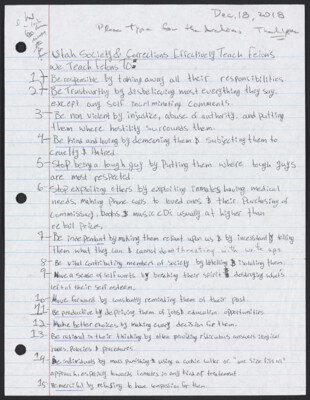 Dec. 18, 2018
Please type for the
Utah Society & Corrections Effectively Teach Felons
We Teach Felons To:
1- Be responsible by taking away all their responsibilities
2- Be Trustworthy by disbelieving most everything they say,
except any self incriminating comments.
3- Be non violent by injustice, abuse of authority, and putting
them where hostility surrounds them.
4- Be kind and loving by demeaning them & subjecting them to
cruelty & Hatred.
5- Stop being a tough guy by Putting them where tough guys
are most respected.
6- Stop exploiting others by exploiting inmates having medical
needs, making phone calls to loved ones & their purchasing of
commissary, Books & music CDs usually at higher than
retail prices.
7- Be independent by making them reliant upon us & by incessantly telling
them what they can & cannot do
8- Be vital contributing members of society by labeling & isolating them.
9- Have a sense of self worth by breaking their spirit & destroying what's
left of their self esteem.
10- Move forward by constantly reminding them of their past.
11- Be productive by depriving them of jobs & education opportunities.
12- Make better choices by making every decision for them.
13- Be rational in their thinking by often providing ridiculous answers, illogical
rules, Policies & procedures.
14- Be individuals by mass punishing & using a cookie cutter or "one size fits all"
approach
15- Be merciful by refusing to have compassion for them.